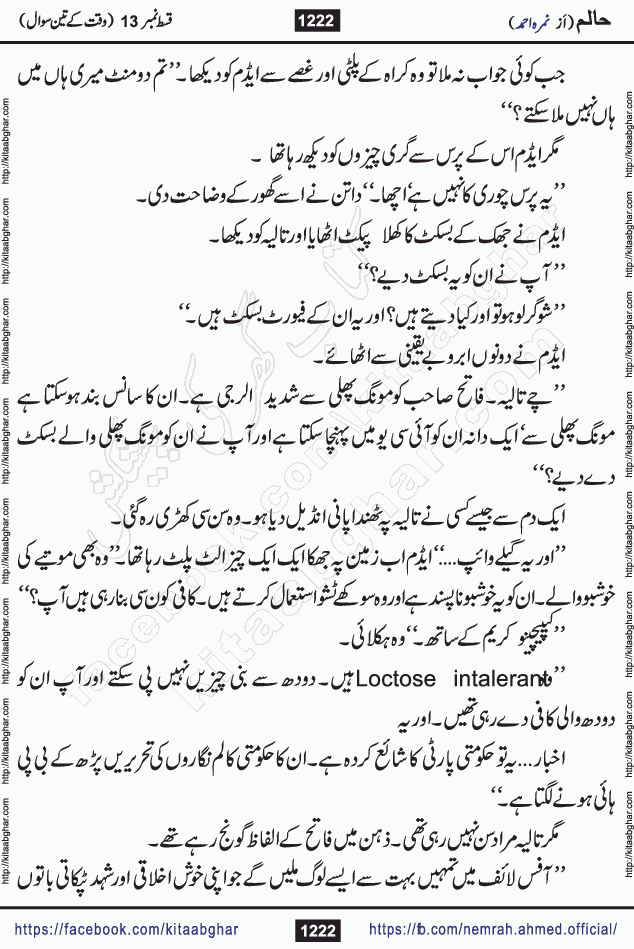 حالم (از نمرہ احمد)
1222
قسط نمبر 13 (وقت کے تین سوال)
جب کوئی جواب نہ ملا تو وہ کراہ کے پلٹی اور غصے سے ایڈم کو دیکھا۔ ’’تم دو منٹ میری ہاں میں
ہاں نہیں ملا سکتے؟‘‘
مگر ایڈم اس کے پرس سے گری چیزوں کو دیکھ رہا تھا ۔
’’یہ پرس چوری کا نہیں ہے‘ اچھا۔‘‘ داتن نے اسے گھور کے وضاحت دی۔
ایڈم نے جھک کے بسکٹ کا کھلا پیکٹ اٹھایا اور تالیہ کو دیکھا۔
’’آپ نے ان کو یہ بسکٹ دیے؟‘‘
’’شوگر لو ہو تو اور کیا دیتے ہیں؟ اور یہ ان کے فیورٹ بسکٹ ہیں۔‘‘
ایڈم نے دونوں ابرو بے یقینی سے اٹھائے۔
’’چے تالیہ۔ فاتح صاحب کو مونگ پھلی سے شدید الرجی ہے۔ ان کا سانس بند ہو سکتا ہے
مونگ پھلی سے‘ ایک دانہ ان کو آئی سی یو میں پہنچا سکتا ہے اور آپ نے ان کو مونگ پھلی والے بسکٹ
دے دیے؟‘‘
ایک دم سے جیسے کسی نے تالیہ پہ ٹھنڈا پانی انڈیل دیا ہو۔ وہ سن سی کھڑی رہ گئی۔
’’اور یہ گیلے وائپ....‘‘ ایڈم اب زمین پہ جھکا ایک ایک چیز الٹ پلٹ رہا تھا۔ ’’وہ بھی موتیے کی
خوشبو والے۔ ان کو یہ خوشبو ناپسند ہے اور وہ سوکھے ٹشو استعمال کرتے ہیں۔ کافی کون سی بنا رہی ہیں آپ؟‘‘
’’کیپیچینو کریم کے ساتھ۔‘‘ وہ ہکلائی۔
’’وہ Loctose intalerant ہیں۔ دودھ سے بنی چیزیں نہیں پی سکتے اور آپ ان کو
دودھ والی کافی دے رہی تھیں۔ اور یہ
اخبار... یہ تو حکومتی پارٹی کا شائع کردہ ہے۔ ان کا حکومتی کالم نگاروں کی تحریریں پڑھ کے بی پی
ہائی ہونے لگتا ہے۔‘‘
مگر تالیہ مراد سن نہیں رہی تھی۔ ذہن میں فاتح کے الفاظ گونج رہے تھے۔
’’آفس لائف میں تمہیں بہت سے ایسے لوگ ملیں گے جو اپنی خوش اخلاقی اور شہد ٹپکاتی باتوں
https://facebook.com/kitaabghar
1222
https://fb.com/nemrah.ahmed.official/
http://kitaabghar.com
kitaabghar.com
facebook.com/kitaabghar
کتاب گھر کی پیشکش